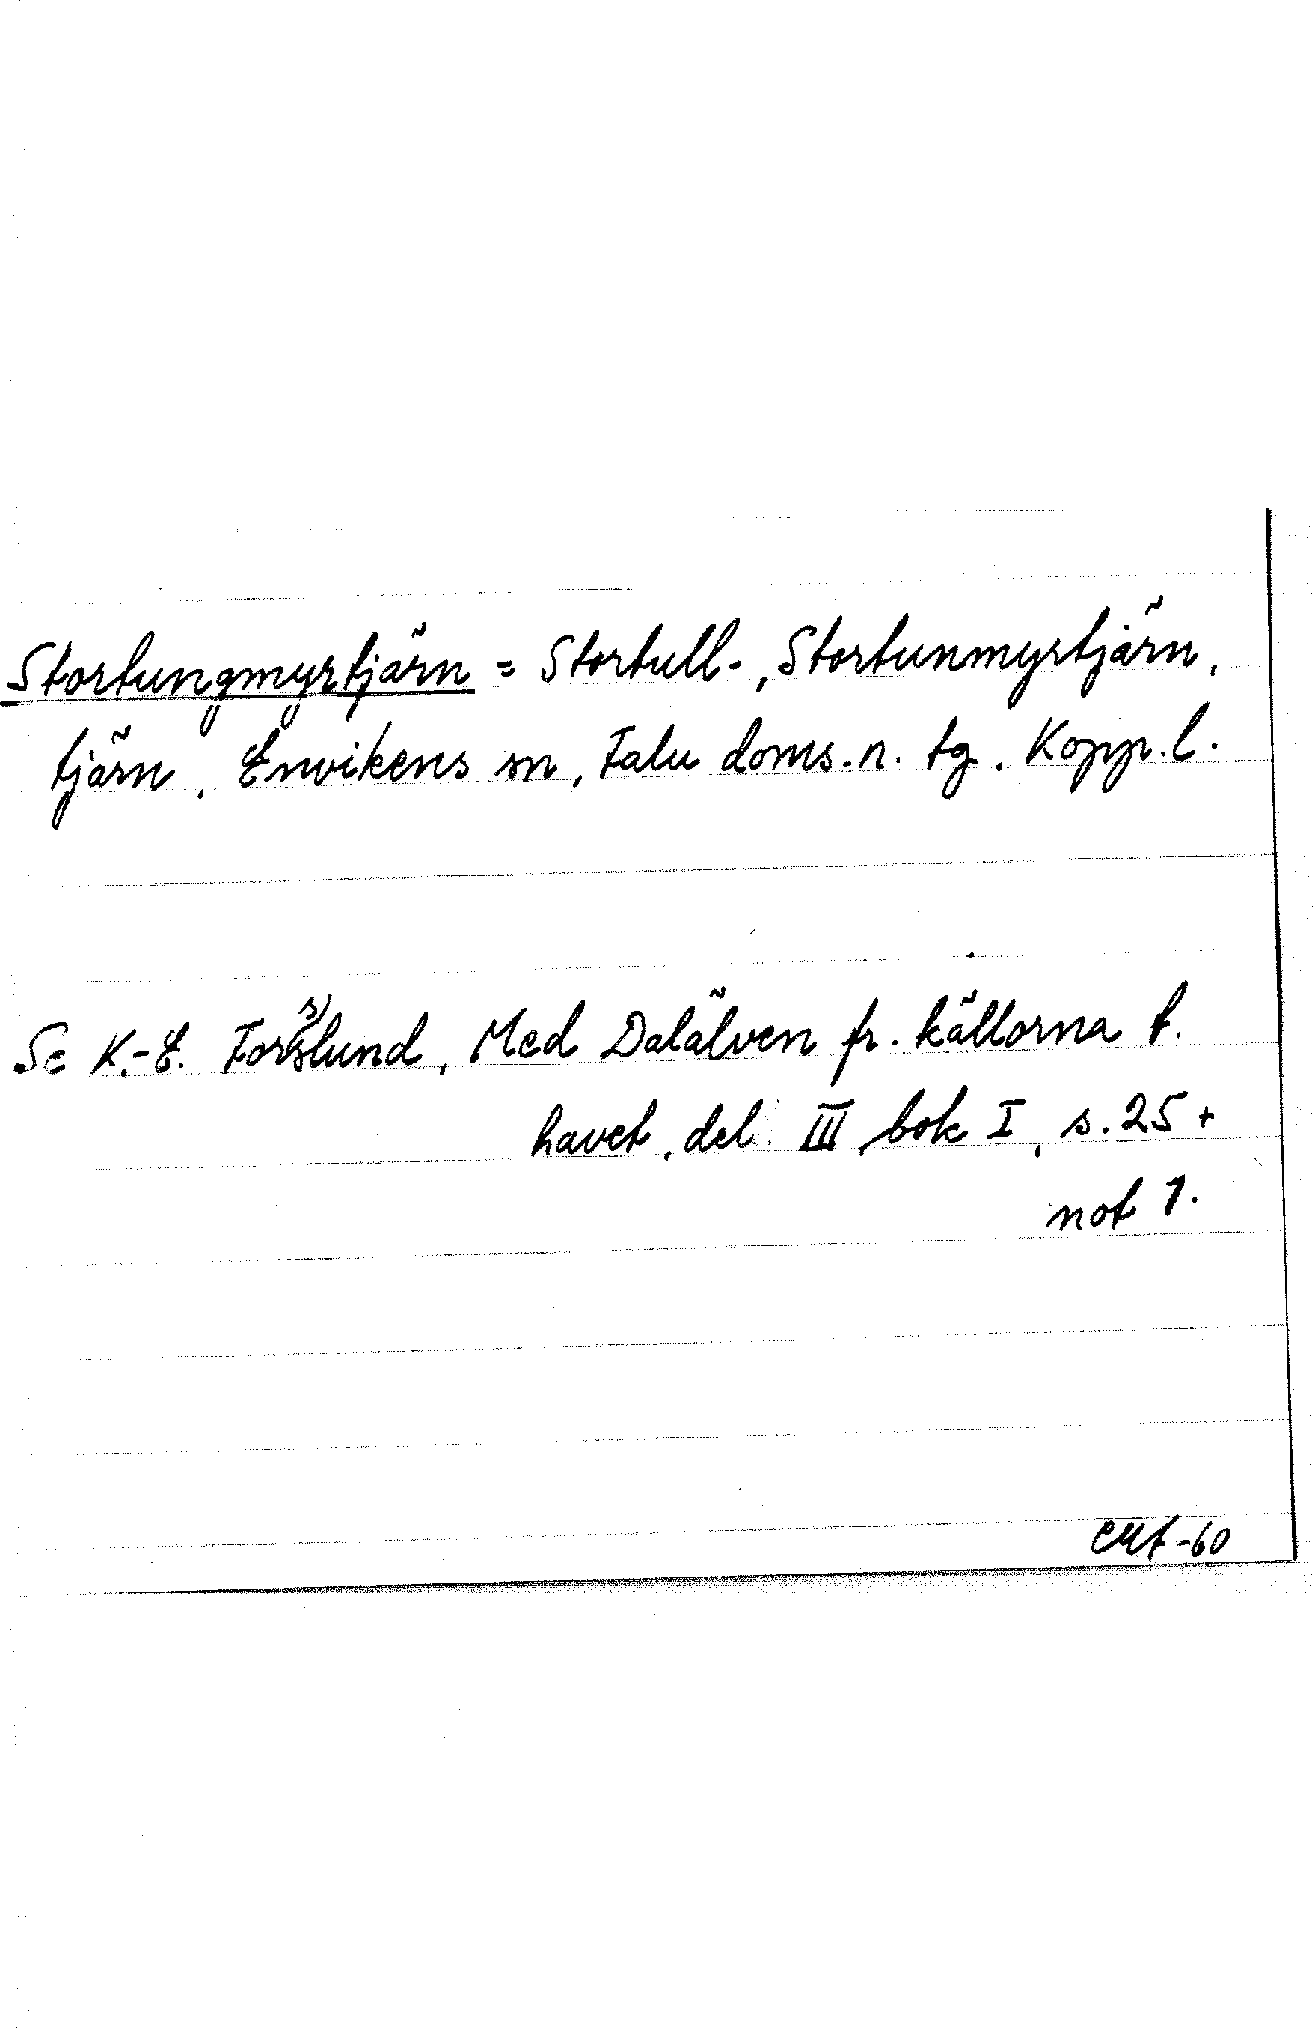 Stortungmyrtjärn = Stortull-, Stortunmyrtjärn,
tjärn, Envikens sn, Falu doms.n. tg. Kopp.l.
Se K.-E. Forslund, Med Dalälven fr. källorna t.
havet, del III bok I, s. 25 +
not 1.
-60